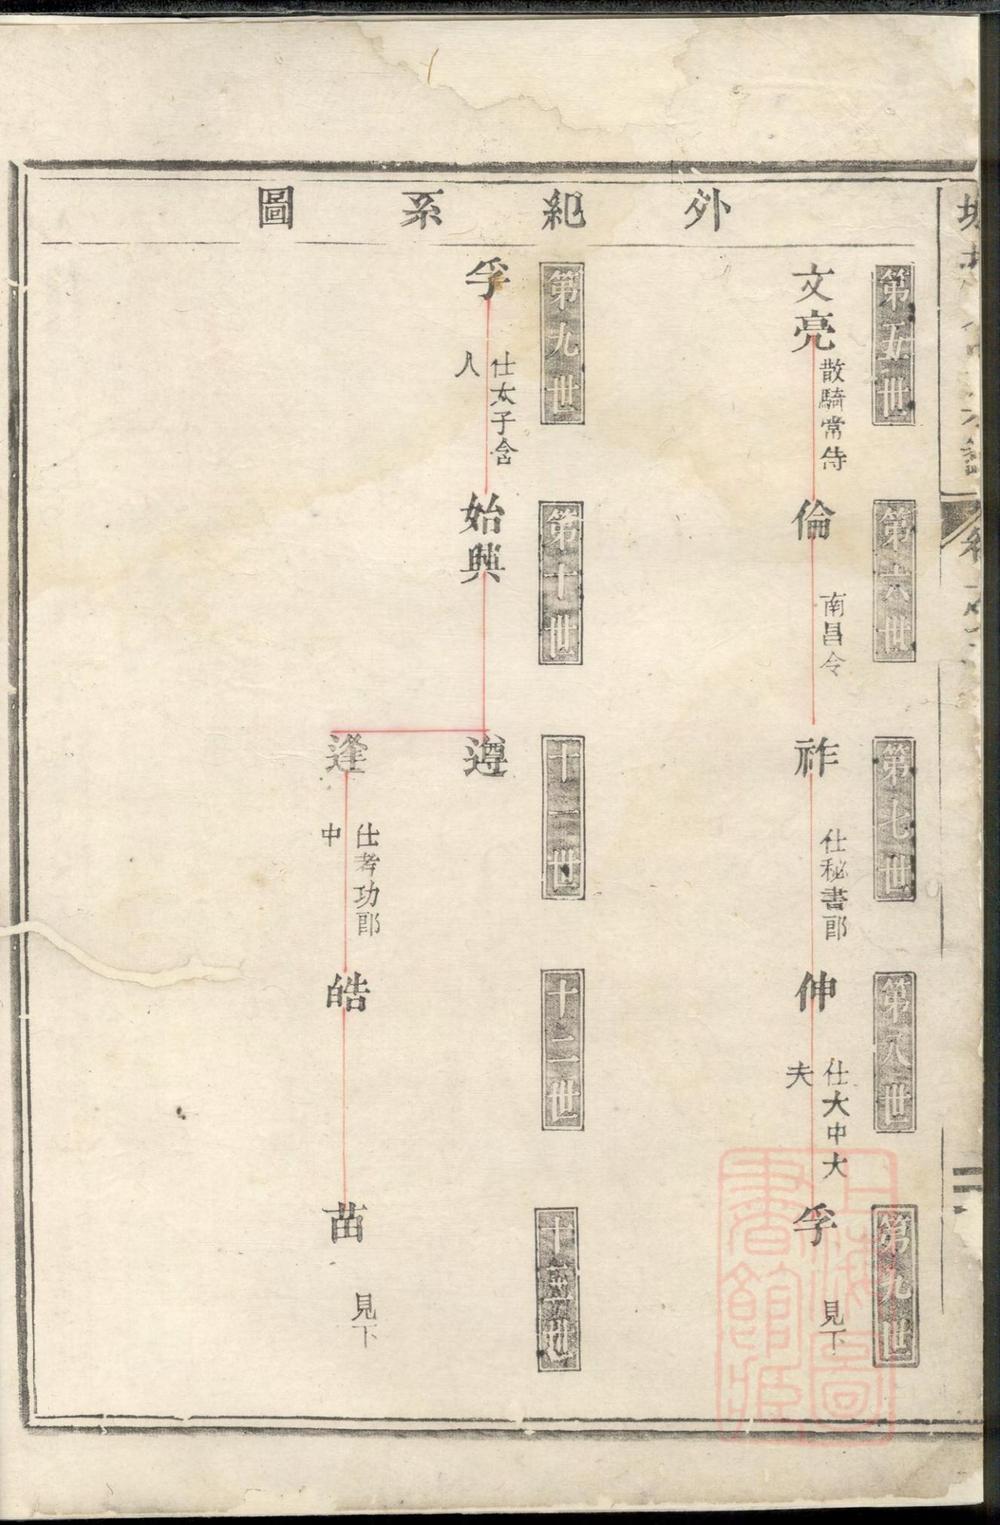 外紀系圖
第五世
文亮
散騎常侍
第六世
倫
南昌令
第七世
祚
仕秘書郎
第八世
伸
仕大中大
夫
第九世
孚
見下
第九世
孚
仕太子舍
人
第十世
始興
十一世
遵
逢
仕考功郎
中
十二世
皓
十三世
苗
見下
上海圖
書館藏